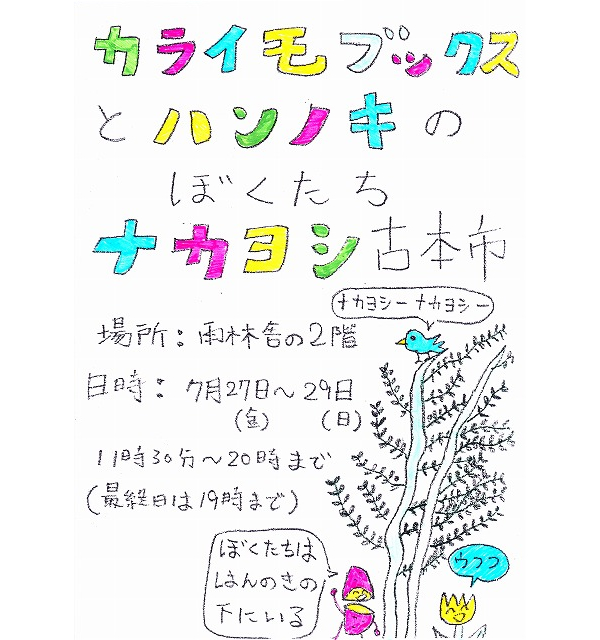 カライモブックス
とハンノキの
ぼくたち
ナカヨシ古本市
ナカヨシー ナカヨシー
場所：雨林舎の2階
日時：7月27日～29日
(金) (日)
11時30分～20時まで
(最終日は19時まで)
ぼくたちは
はんのきの
下にいる
ウフフ